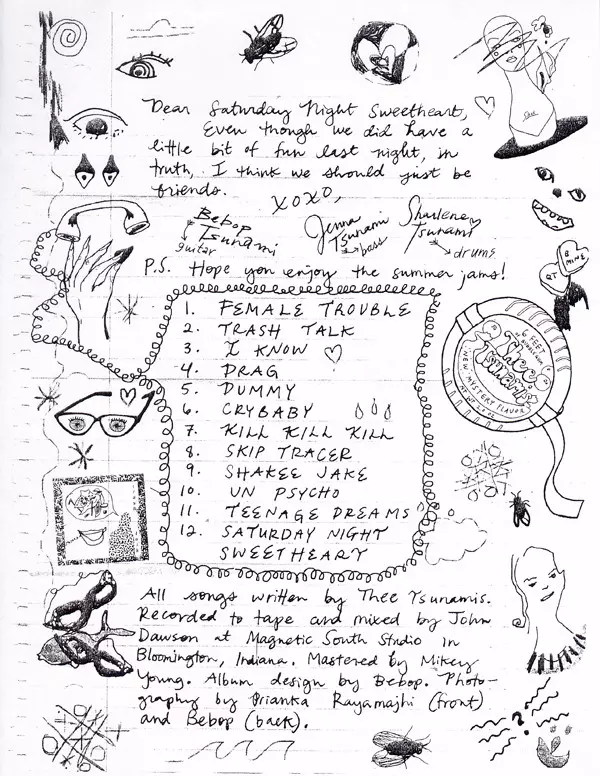 Dear Saturday Night Sweetheart,
Even though we did have a
little bit of fun last night, in
truth, I think we should just be
friends.
XOXO,
Bebop
Tsunami
guitar
Jenna
Tsunami
bass
Sharlene
Tsunami
drums
P.S. Hope you enjoy the summer jams!
1. FEMALE TROUBLE
2. TRASH TALK
3. I KNOW
4. DRAG
5. DUMMY
6. CRYBABY
7. KILL KILL KILL
8. SKIP TRACER
9. SHAKEE JAKE
10. UN PSYCHO
11. TEENAGE DREAMS
12. SATURDAY NIGHT
SWEETHEART
B
MINE
QT
6 FEET
Thee
Tsunamis
NEW MYSTERY FLAVOR
All songs written by Thee Tsunamis.
Recorded to tape and mixed by John
Dawson at Magnetic South Studio in
Bloomington, Indiana. Mastered by Mikey
Young. Album design by Bebop. Photo-
graphy by Prianka Rayamajhi (front)
and Bebop (back).
?